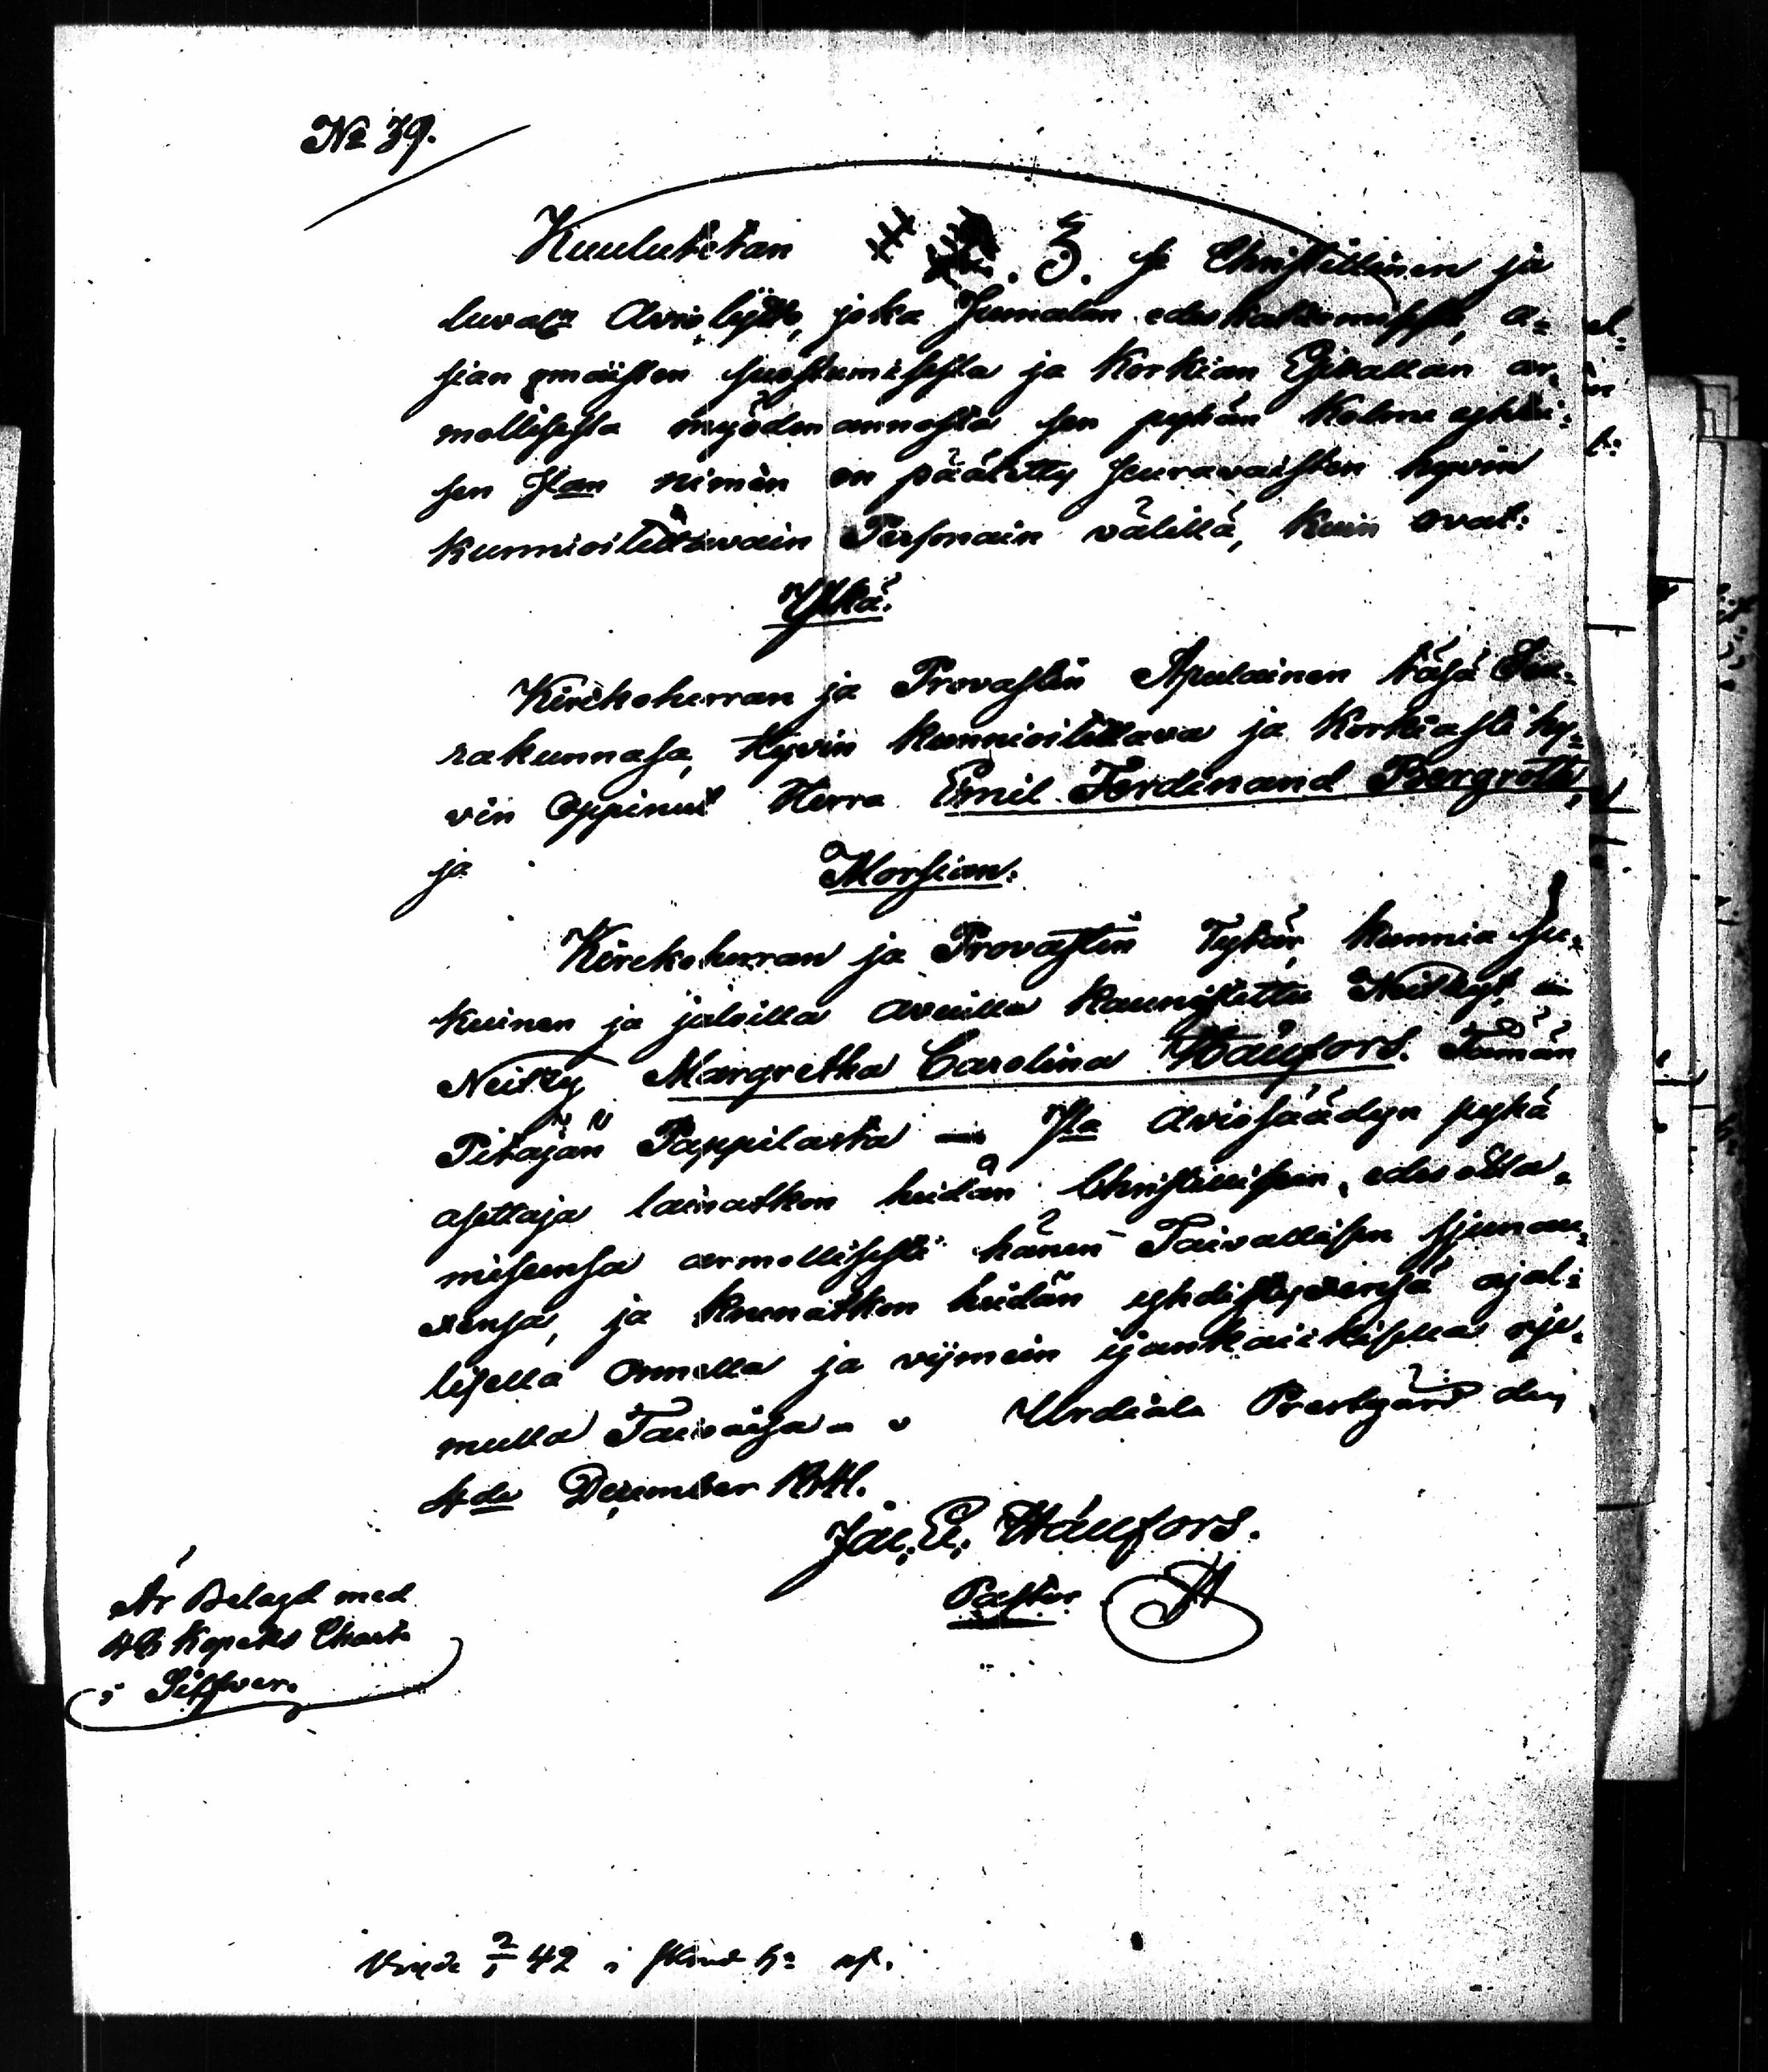 No 39.
Kuulutetan 3. se Christillinen ja
luvaln Avio lijtto, joka Jumalan edeskatsomisesta, a=
sian omaisten suostumisesta ja Korkian Esivallan ar=
mollisesta myöden annosta sen pyhän Kolme yhtei=
sen Jlan nimen on päätetty seuravaisten hyvin
kunnioitettavain Personain välillä, kuin ovat:
Ylkä.
Kirckoherran ja Provastin Apulainen täsä Seu=
rakunnasa, Hyvin kunnioitettava ja Korkiasti hy=
vin Oppinut Herra Emil Ferdinand Bergroth,
ja
Morsian:
Kirckoherran ja Provastin Tytär, kunnia su=
kuinen ja jaloilla avuilla kaunistettu Neitsyt,
Neitzy Margretha Carolina Häufors. Tämän
Pitäjän Pappilasta — Jla Aviosäädyn pyhä
asettaja lainatkon heidän Christillisen edesotta=
misensa armollisesti hänen Taivallisen sjunau=
xensa, ja kruunatkon heidän yhdistyxensä ajal=
lisella onnella ja vijmein ijankaickisella rje=
mulla Taivaisa. Urdiala Prestgård den
4de December 1841.
Jac. E. Häufors.
Pastor
Är Belagd med
Kopeks Charta
i Silfwer.
Vigde 2/1 42 i